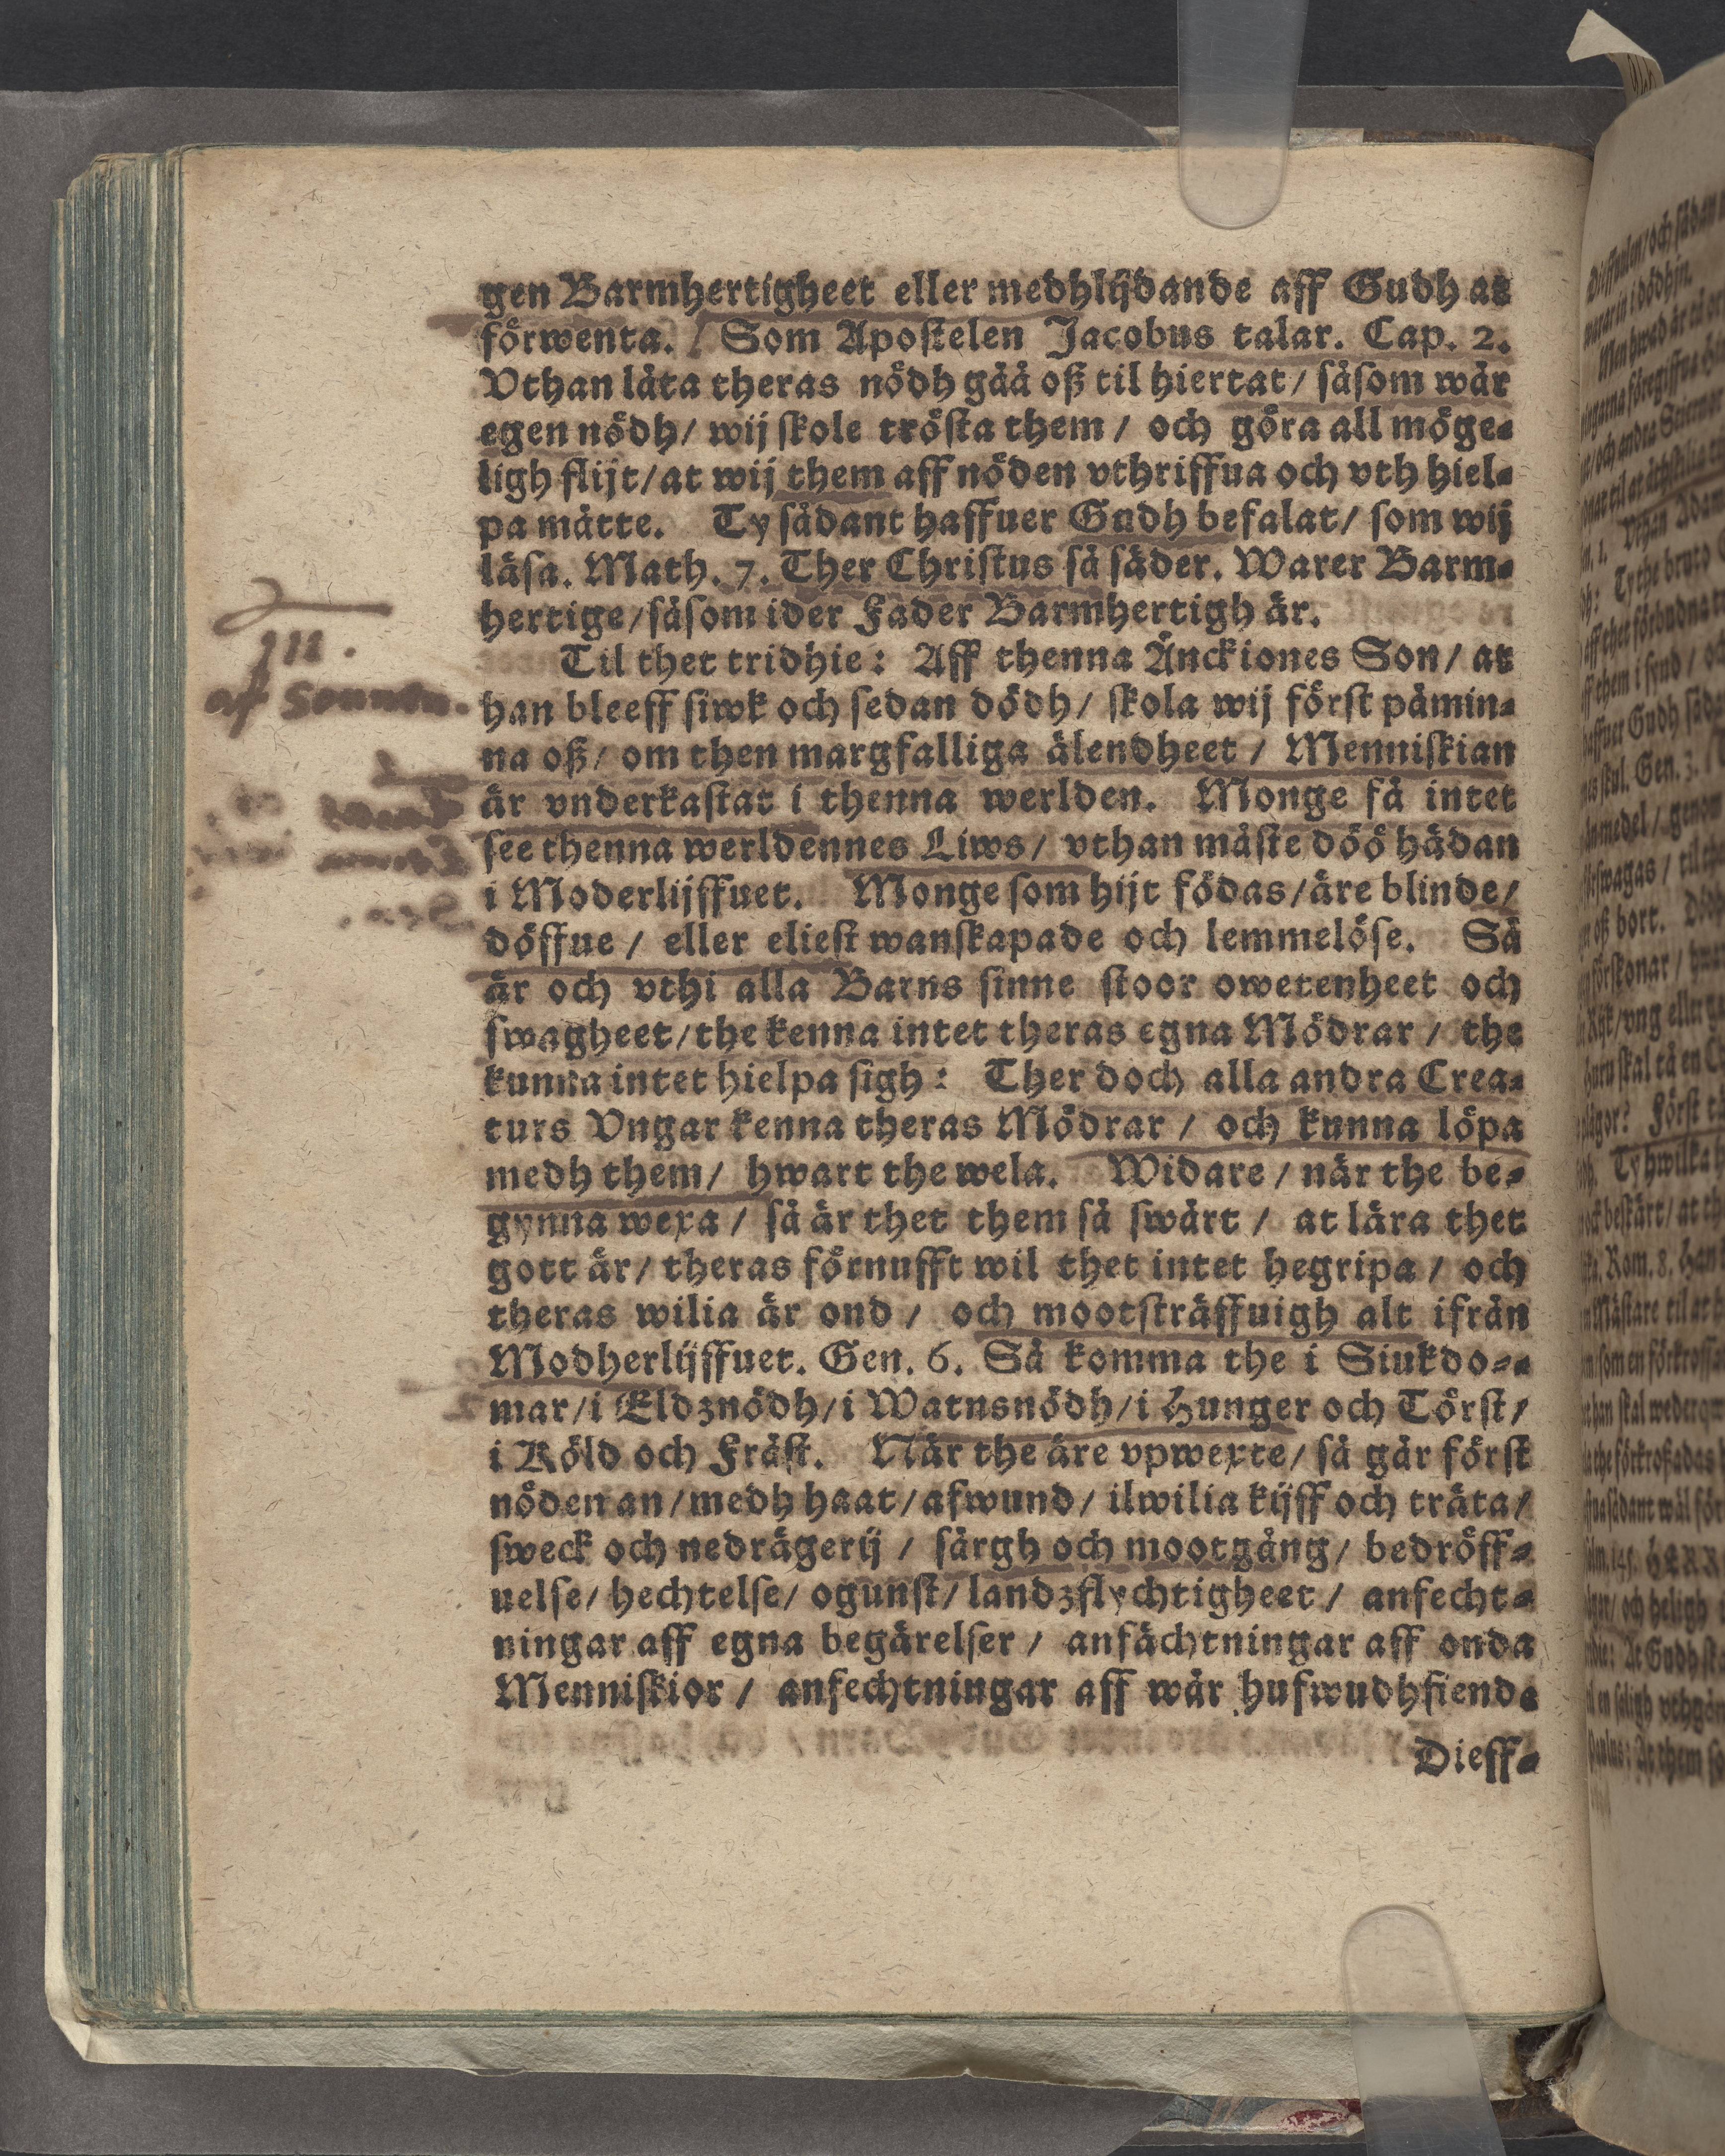 gen Barmhertigheet eller medhlijdande aff Gudh at
förwenta. / Som Apostelen Jacobus talar. Cap. 2.
Vthan låta theras nödh gåå oß til hiertat / såsom wår
egen nödh / wij skole trösta them / och göra all möge-
ligh flijt / at wij them aff nöden vthriffua och vth hiel-
pa måtte. Ty sådant haffuer Gudh befalat / som wij
läsa. Math. 7. Ther Christus så säder. Warer Barm-
hertige / såsom ider Fader Barmhertigh är.
III.
af Sonnen.
Til thet tridhie: Aff thenna Änckiones Son / at
han bleeff siwk och sedan dödh / skola wij först påmin-
na oß / om then margfalliga älendheet / Menniskian
är vnderkastat i thenna werlden. Monge få intet
see thenna werldennes Liws / vthan måste döö hädan
i Moderlijffuet. Monge som hijt födas / äre blinde /
döffue / eller eliest wanskapade och lemmelöse. Så
är och vthi alla Barns sinne stoor owetenheet och
swagheet / the kenna intet theras egna Mödrar / the
kunna intet hielpa sigh: Ther doch alla andra Crea-
turs Vngar kenna theras Mödrar / och kunna löpa
medh them / hwart the wela. Widare / när the be-
gynna wexa / så är thet them så swårt / at lära thet
gott är / theras förnufft wil thet intet hegripa / och
theras wilia är ond / och mootsträffuigh alt ifrån
Modherlijffuet. Gen. 6. Så komma the i Siukdo-
mar / i Eldznödh / i Watnsnödh / i Hunger och Törst /
i Köld och Fråst. När the äre vpwexte / så går först
nöden an / medh haat / afwund / ilwilia kijff och träta /
sweck och nedrägerij / särgh och mootgång / bedröff-
uelse / hechtelse / ogunst / landzflychtigheet / anfecht-
ningar aff egna begärelser / anfächtningar aff onda
Menniskior / anfechtningar aff wår hufwudhfiende
Dieff-